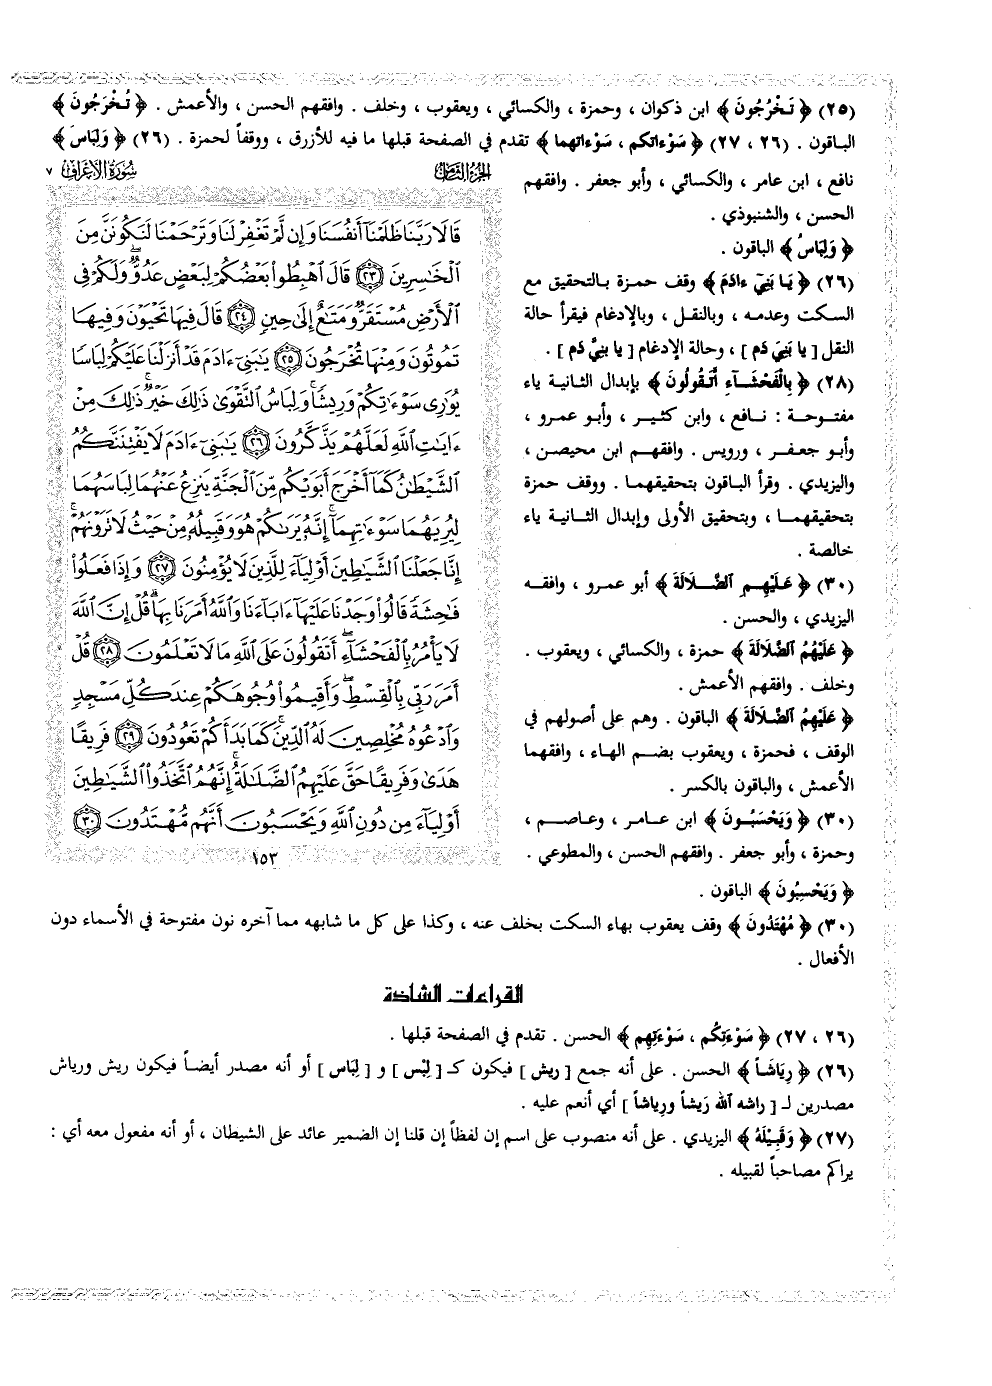 (٢٥) ﴿ تَخْرُجُونَ ﴾ ابن ذكوان ، وحمزة ، والكسائي ، ويعقوب ، وخلف . وافقهم الحسن ، والأعمش . ﴿ تُخْرَجُونَ ﴾
الباقون . (٢٦ ، ٢٧) ﴿ سَوْءَاتكم ، سَوْءَاتهما ﴾ تقدم في الصفحة قبلها ما فيه للأزرق ، ووقفاً لحمزة . (٢٦) ﴿ وَلِبَاسَ ﴾
نافع ، ابن عامر ، والكسائي ، وأبو جعفر . وافقهم
الحسن ، والشنبوذي .
﴿ وَلِبَاسُ ﴾ الباقون .
(٢٦) ﴿ يَا بَنِيٓ ءادَمَ ﴾ وقف حمزة بالتحقيق مع
السكت وعدمه ، وبالنقل ، وبالإدغام فيقرأ حالة
النقل [ يا بَنِيَ دَم ] ، وحالة الإدغام [ يا بنيَّ دَم ] .
(٢٨) ﴿ بِالْفَحْشَاءِ أَتَقُولُونَ ﴾ بإبدال الثانية ياء
مفتوحة : نافع ، وابن كثير ، وأبو عمرو ،
وأبو جعفر ، ورويس . وافقهم ابن محيصن ،
واليزيدي . وقرأ الباقون بتحقيقهما . ووقف حمزة
بتحقيقهما ، وبتحقيق الأولى وإبدال الثانية ياء
خالصة .
(٣٠) ﴿ عَلَيْهِمِ الضَّلَالَةَ ﴾ أبو عمرو ، وافقه
اليزيدي ، والحسن .
﴿ عَلَيْهُمُ الضَّلَالَةَ ﴾ حمزة ، والكسائي ، ويعقوب .
وخلف . وافقهم الأعمش .
﴿ عَلَيْهِمُ الضَّلَالَةَ ﴾ الباقون . وهم على أصولهم في
الوقف ، فحمزة ، ويعقوب بضم الهاء ، وافقهما
الأعمش ، والباقون بالكسر .
(٣٠) ﴿ وَيَحْسَبُونَ ﴾ ابن عامر ، وعاصم ،
وحمزة ، وأبو جعفر . وافقهم الحسن ، والمطوعي .
﴿ وَيَحْسِبُونَ ﴾ الباقون .
الجزء الثامن
سورة الأعراف ٧
قَالَا رَبَّنَا ظَلَمْنَآ أَنفُسَنَا وَإِن لَّمْ تَغْفِرْ لَنَا وَتَرْحَمْنَا لَنَكُونَنَّ مِنَ
ٱلْخَٰسِرِينَ ٢٣ قَالَ ٱهْبِطُوا۟ بَعْضُكُمْ لِبَعْضٍ عَدُوٌّ ۖ وَلَكُمْ فِى
ٱلْأَرْضِ مُسْتَقَرٌّ وَمَتَٰعٌ إِلَىٰ حِينٍ ٢٤ قَالَ فِيهَا تَحْيَوْنَ وَفِيهَا
تَمُوتُونَ وَمِنْهَا تُخْرَجُونَ ٢٥ يَٰبَنِىٓ ءَادَمَ قَدْ أَنزَلْنَا عَلَيْكُمْ لِبَاسًا
يُوَٰرِى سَوْءَٰتِكُمْ وَرِيشًا ۖ وَلِبَاسُ ٱلتَّقْوَىٰ ذَٰلِكَ خَيْرٌ ۚ ذَٰلِكَ مِنْ
ءَايَٰتِ ٱللَّهِ لَعَلَّهُمْ يَذَّكَّرُونَ ٢٦ يَٰبَنِىٓ ءَادَمَ لَا يَفْتِنَنَّكُمُ
ٱلشَّيْطَٰنُ كَمَآ أَخْرَجَ أَبَوَيْكُم مِّنَ ٱلْجَنَّةِ يَنزِعُ عَنْهُمَا لِبَاسَهُمَا
لِيُرِيَهُمَا سَوْءَٰتِهِمَآ ۗ إِنَّهُۥ يَرَىٰكُمْ هُوَ وَقَبِيلُهُۥ مِنْ حَيْثُ لَا تَرَوْنَهُمْ ۗ
إِنَّا جَعَلْنَا ٱلشَّيَٰطِينَ أَوْلِيَآءَ لِلَّذِينَ لَا يُؤْمِنُونَ ٢٧ وَإِذَا فَعَلُوا۟
فَٰحِشَةً قَالُوا۟ وَجَدْنَا عَلَيْهَآ ءَابَآءَنَا وَٱللَّهُ أَمَرَنَا بِهَا ۗ قُلْ إِنَّ ٱللَّهَ
لَا يَأْمُرُ بِٱلْفَحْشَآءِ ۖ أَتَقُولُونَ عَلَى ٱللَّهِ مَا لَا تَعْلَمُونَ ٢٨ قُلْ
أَمَرَ رَبِّى بِٱلْقِسْطِ ۖ وَأَقِيمُوا۟ وُجُوهَكُمْ عِندَ كُلِّ مَسْجِدٍ
وَٱدْعُوهُ مُخْلِصِينَ لَهُ ٱلدِّينَ ۚ كَمَا بَدَأَكُمْ تَعُودُونَ ٢٩ فَرِيقًا
هَدَىٰ وَفَرِيقًا حَقَّ عَلَيْهِمُ ٱلضَّلَٰلَةُ ۗ إِنَّهُمُ ٱتَّخَذُوا۟ ٱلشَّيَٰطِينَ
أَوْلِيَآءَ مِن دُونِ ٱللَّهِ وَيَحْسَبُونَ أَنَّهُم مُّهْتَدُونَ ٣٠
١٥٣
(٣٠) ﴿ مُهْتَدُونَ ﴾ وقف يعقوب بهاء السكت بخلف عنه ، وكذا على كل ما شابهه مما آخره نون مفتوحة في الأسماء دون
الأفعال .
القراءات الشاذة
(٢٦ ، ٢٧) ﴿ سَوْءَتِكُم ، سَوْءَتِهِم ﴾ الحسن . تقدم في الصفحة قبلها .
(٢٦) ﴿ رِيَاشاً ﴾ الحسن . على أنه جمع [ ريش ] فيكون كـ [ لِبْس ] و [ لِبَاس ] أو أنه مصدر أيضاً فيكون ريش ورياش
مصدرين لـ [ راشه الله رَيشاً ورِياشاً ] أي أنعم عليه .
(٢٧) ﴿ وَقَبِيْلَهُ ﴾ اليزيدي . على أنه منصوب على اسم إن لفظاً إن قلنا إن الضمير عائد على الشيطان ، أو أنه مفعول معه أي :
يراكم مصاحباً لقبيله .